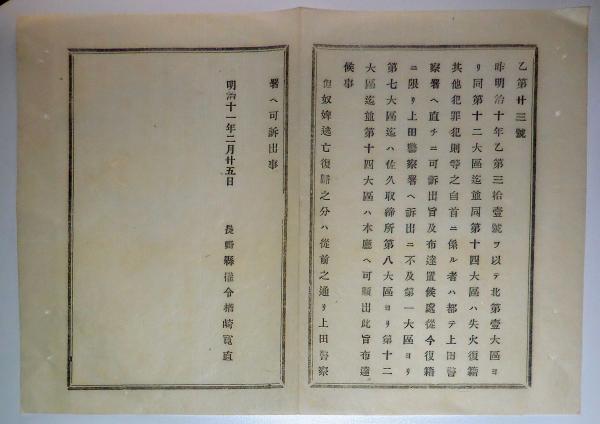 乙第廿三號
昨明治十年乙第三拾壹號ヲ以テ北第壹大區ヨ
リ同第十二大區迄並同第十四大區ハ失火復籍
其他犯罪犯則等之自首ニ係ル者ハ都テ上田警
察署ヘ直チニ可訴出旨及布達置候處從今復籍
ニ限リ上田警察署ヘ訴出ニ不及第一大區ヨリ
第七大區迄ハ佐久取締所第八大區ヨリ第十二
大區迄並第十四大區ハ本廳ヘ可願出此旨布達
候事
但奴婢逃亡復歸之分ハ從前之通リ上田警察
署ヘ可訴出事
明治十一年二月廿五日
長野縣權令楢崎寛直